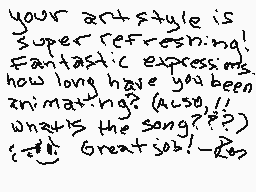 your art style is
super refreshing!
Fantastic expressions.
how long have you been
animating? (ALSO,!!
what is the song???)
Great job! -